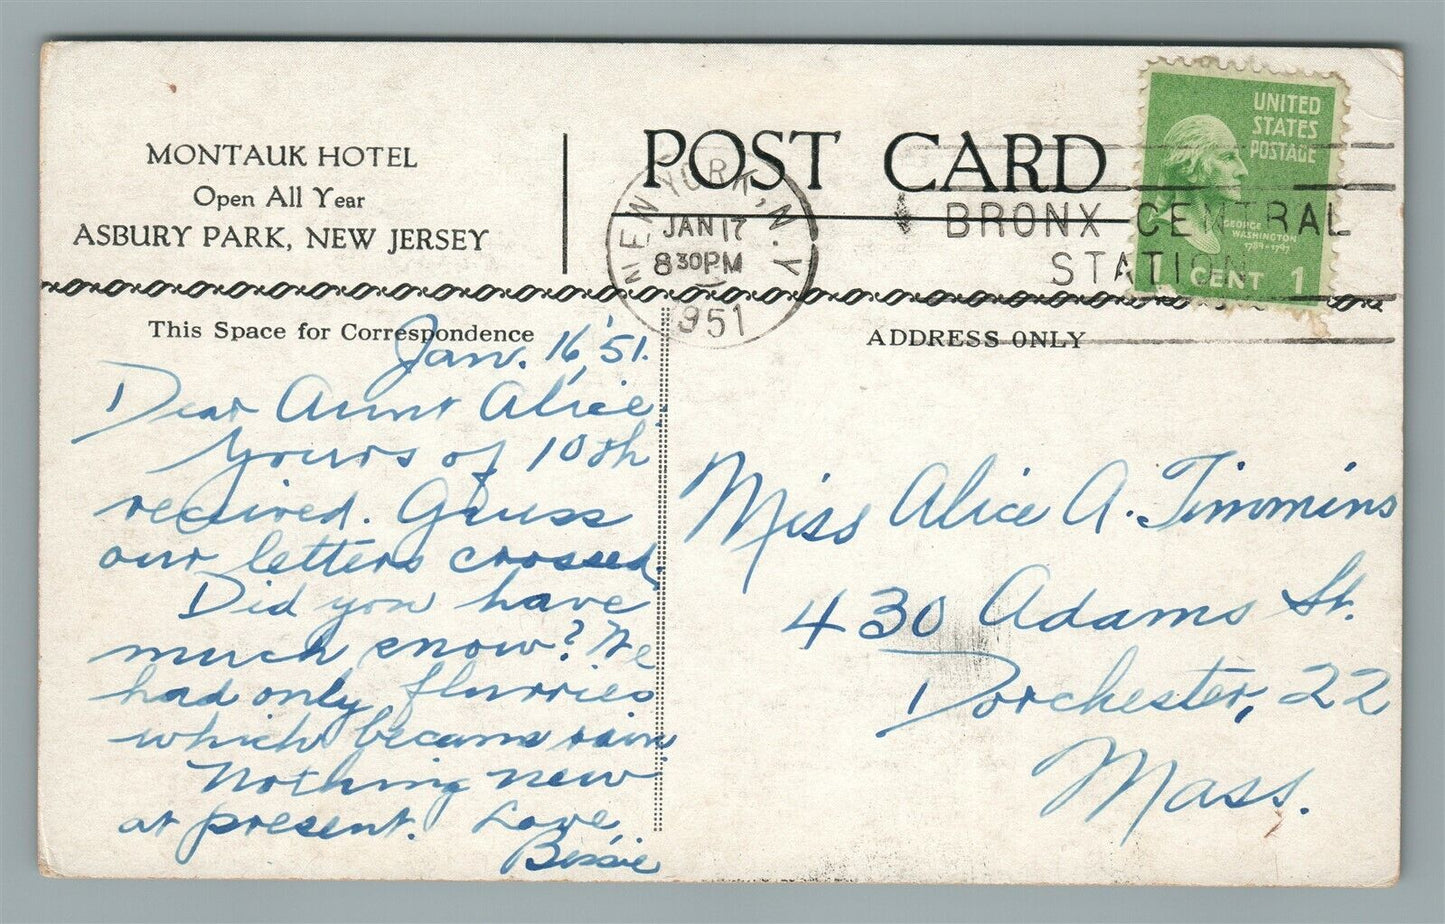 MONTAUK HOTEL
Open All Year
ASBURY PARK, NEW JERSEY
POST CARD
NEW YORK, N.Y.
JAN 17
8 30 PM
1951
BRONX CENTRAL
STATION
UNITED
STATES
POSTAGE
GEORGE
WASHINGTON
1789-1797
1 CENT 1
This Space for Correspondence
Jan. 16, '51.
Dear Aunt Alice,
Yours of 10th
received. Guess
our letters crossed.
Did you have
much snow? We
had only flurries
which became rain.
Nothing new
at present. Love,
Bessie
ADDRESS ONLY
Miss Alice A. Timmins
430 Adams St.
Dorchester, 22
Mass.